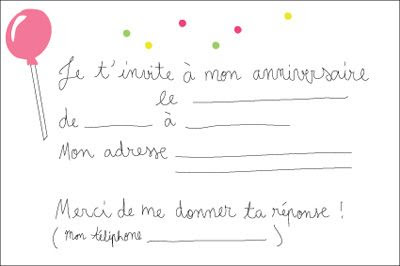 Je t'invite à mon anniversaire
le
de à
Mon adresse
Merci de me donner ta réponse !
( Mon téléphone )